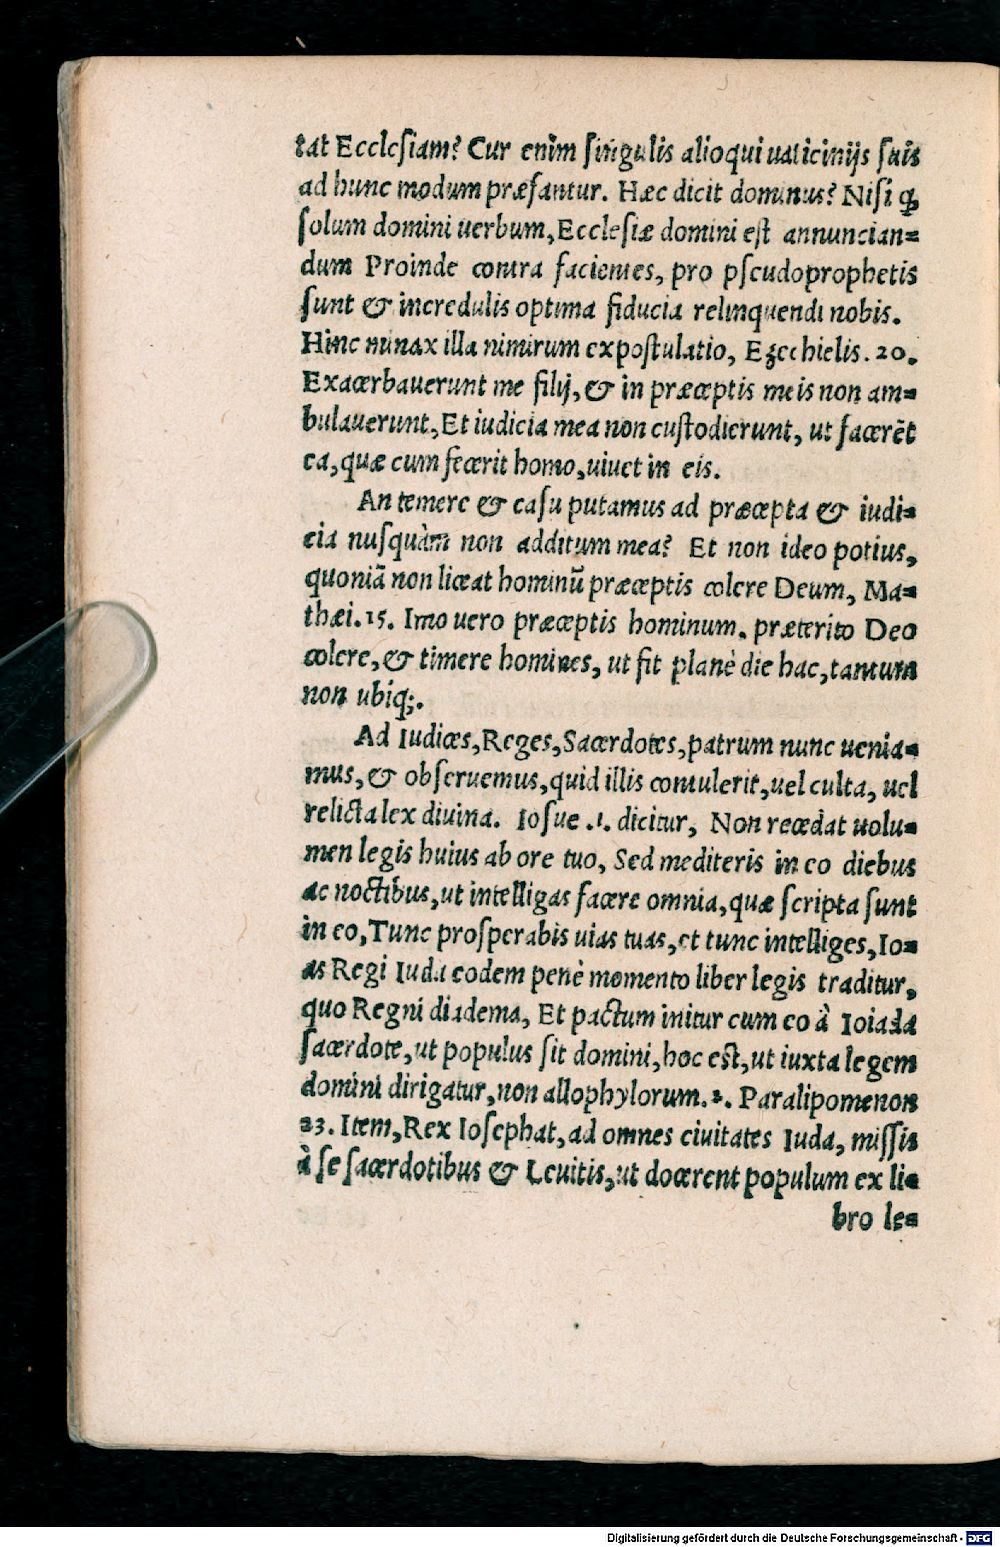 tat Ecclesiam? Cur enim singulis alioqui uaticinijs suis
ad hunc modum præfantur. Hæc dicit dominus? Nisi ꝙ
solum domini uerbum, Ecclesiæ domini est annuncian=
dum Proinde contra facientes, pro pseudoprophetis
sunt & incredulis optima fiducia relinquendi nobis.
Hinc minax illa nimirum expostulatio, Ezechielis. 20.
Exacerbauerunt me filij, & in præceptis meis non am=
bulauerunt, Et iudicia mea non custodierunt, ut facerēt
ea, quæ cum fecerit homo, uiuet in eis.
An temere & casu putamus ad præcepta & iudi=
cia nusquàm non additum mea? Et non ideo potius,
quoniā non liceat hominū præceptis colere Deum, Ma=
thæi. 15. Imo uero præceptis hominum, præterito Deo
colere, & timere homines, ut fit planè die hac, tantum
non ubiq;.
Ad Iudices, Reges, Sacerdotes, patrum nunc uenia=
mus, & obseruemus, quid illis contulerit, uel culta, uel
relicta lex diuina. Iosue .1. dicitur, Non recedat uolu=
men legis huius ab ore tuo, Sed mediteris in eo diebus
ac noctibus, ut intelligas facere omnia, quæ scripta sunt
in eo, Tunc prosperabis uias tuas, et tunc intelliges, Io=
as Regi Iuda eodem penè momento liber legis traditur,
quo Regni diadema, Et pactum initur cum eo à Ioiada
sacerdote, ut populus sit domini, hoc est, ut iuxta legem
domini dirigatur, non allophylorum. 2. Paralipomenon
23. Item, Rex Iosephat, ad omnes ciuitates Iuda, missis
à se sacerdotibus & Leuitis, ut docerent populum ex li=
bro le=
Digitalisierung gefördert durch die Deutsche Forschungsgemeinschaft - DFG